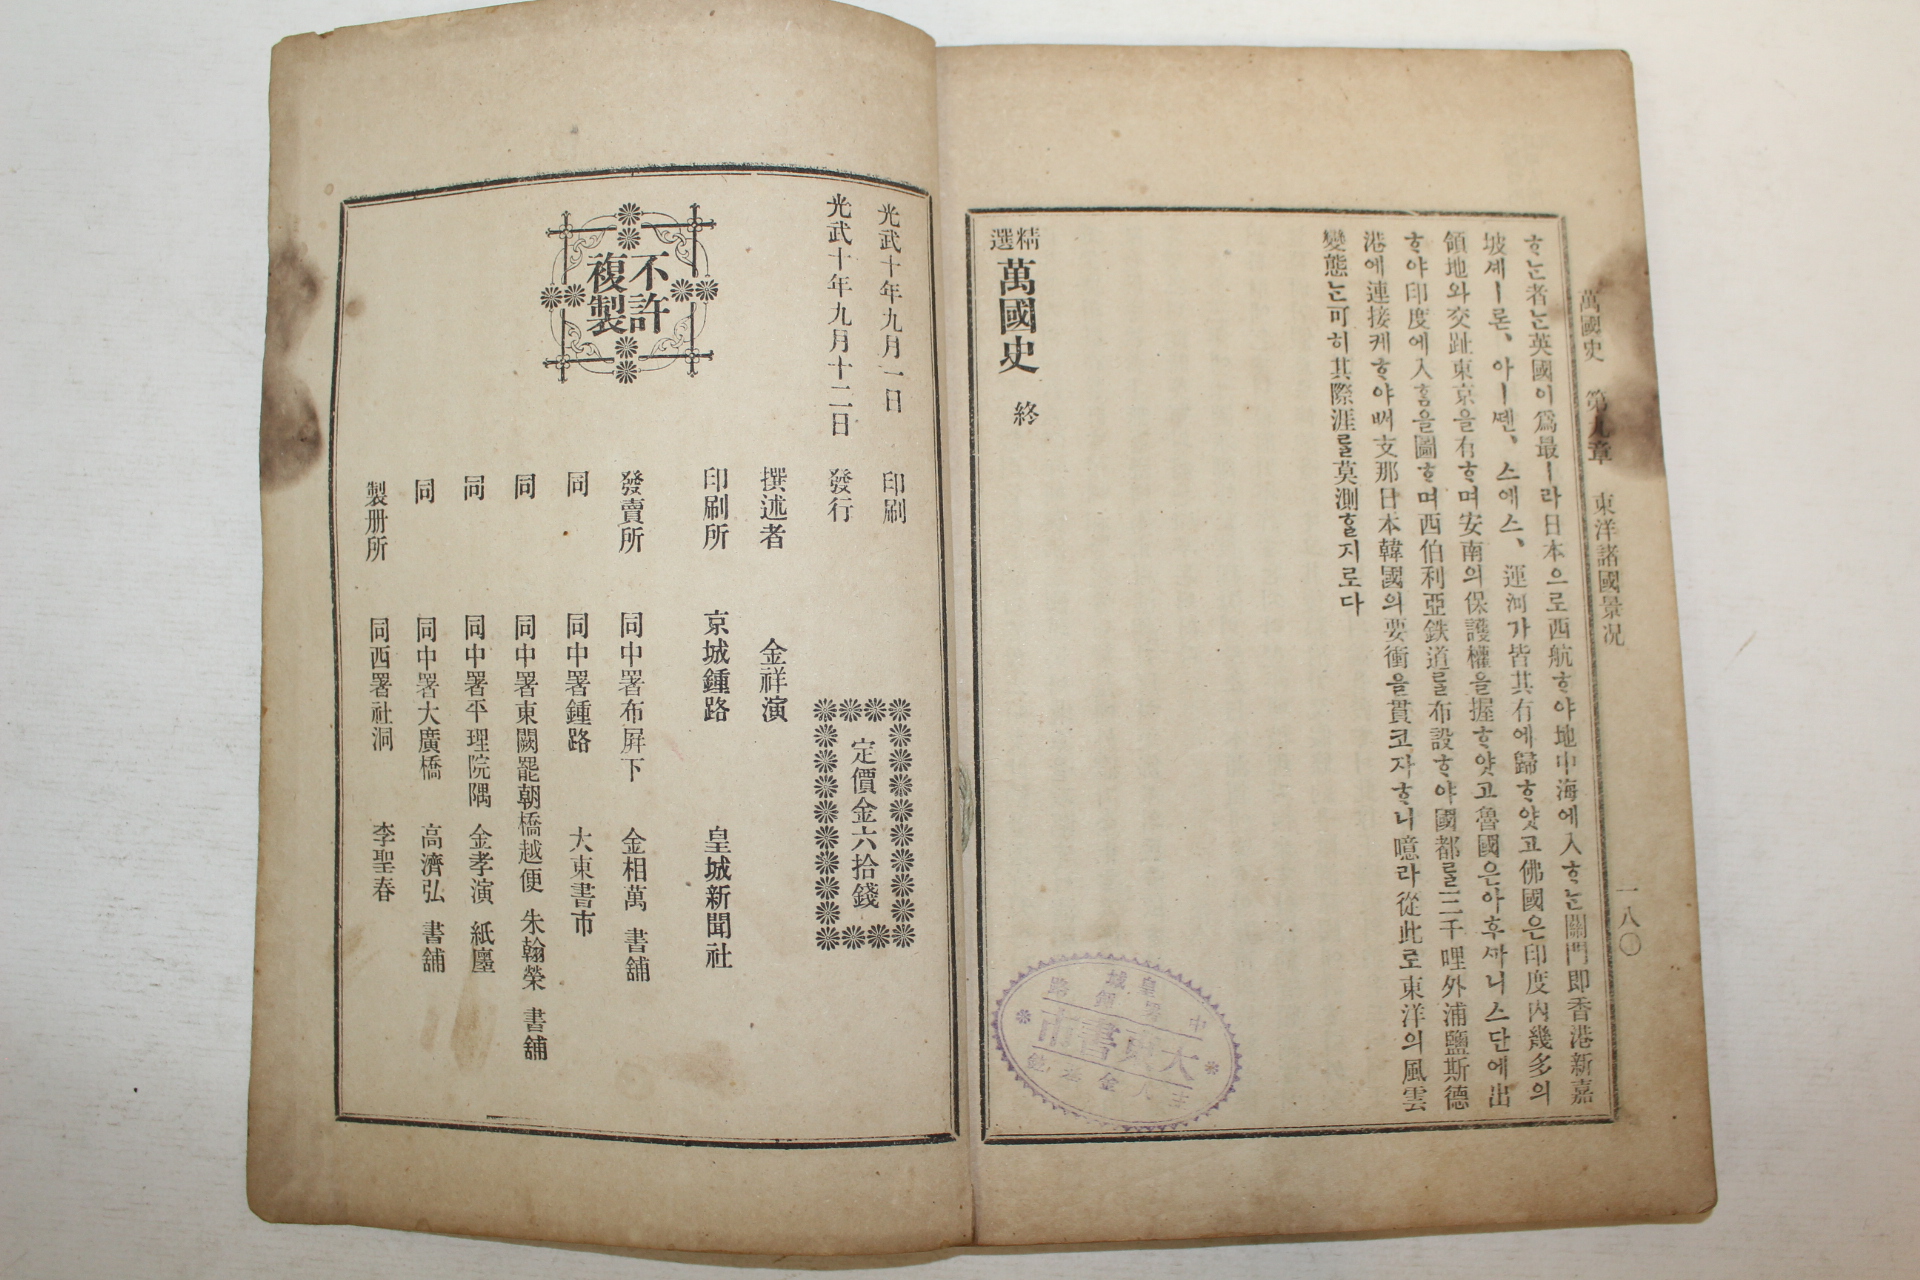 萬國史 第九章 東洋諸國景况 一八〇
ᄒᆞᄂᆞᆫ者ᄂᆞᆫ英國이爲最ㅣ라日本으로西航ᄒᆞ야地中海에入ᄒᆞᄂᆞᆫ關門即香港新嘉
坡셰ㅣ론、아ㅣ쎈、스에스、運河가皆其有에歸ᄒᆞ얏고佛國은印度內幾多의
領地와交趾東京을有ᄒᆞ며安南의保護權을握ᄒᆞ얏고魯國은아후ᄭᅡ니스단에出
ᄒᆞ야印度에入홈을圖ᄒᆞ며西伯利亞鉄道ᄅᆞᆯ布設ᄒᆞ야國都ᄅᆞᆯ三千哩外浦鹽斯德
港에連接케ᄒᆞ야ᄡᅥ支那日本韓國의要衝을貫코자ᄒᆞ니噫라從此로東洋의風雲
變態ᄂᆞᆫ可히其際涯ᄅᆞᆯ莫測ᄒᆞᆯ지로다
精選 萬國史 終
皇城
中署
鍾路
大東書市
主人金
光武十年九月一日 印刷
光武十年九月十二日 發行
定價金六拾錢
撰述者 金祥演
印刷所 京城鍾路 皇城新聞社
發賣所 同中署布屏下 金相萬 書舖
同 同中署鍾路 大東書市
同 同中署東闕罷朝橋越便 朱翰榮 書舖
同 同中署平理院隅 金孝演 紙廛
同 同中署大廣橋 高濟弘 書舖
製册所 同西署社洞 李聖春
不許
複製